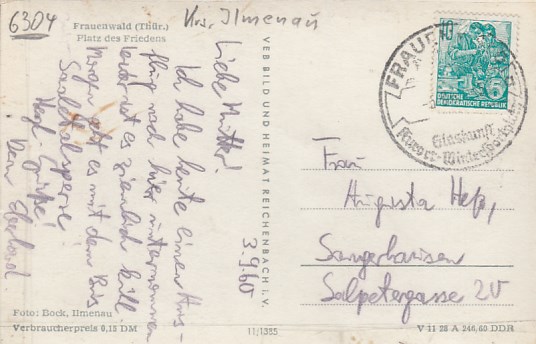 6304
Krs. Ilmenau
Frauenwald (Thür.)
Platz des Friedens
3.9.60
Liebe Mutter!
Ich habe heute einen Aus-
flug nach hier unternommen
leider ist es ziemlich kalt.
Morgen geht es mit dem Bus
Saaletalsperre
Herzl. Grüße!
Dein Eberhard.
Foto: Bock, Ilmenau
Verbraucherpreis 0,15 DM
VEB BILD UND HEIMAT REICHENBACH i. V.
11/1385
V 11 28 A 246/60 DDR
10
DEUTSCHE
DEMOKRATISCHE REPUBLIK
Kurort-Wintersportplatz
Frau
Augusta Heß,
Sangerhausen
Salpetergasse 20